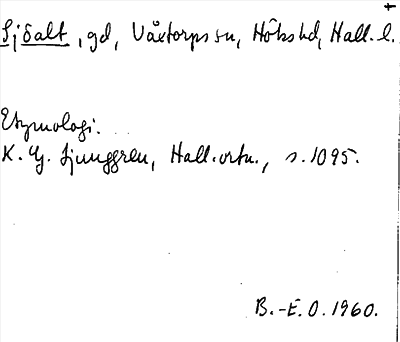 Sjöalt, gd, Våxtorps sn, Höks hd, Hall. l.
Etymologi.
K. G. Ljunggren, Hall. ortn., s. 1095.
B.-E. O. 1960.